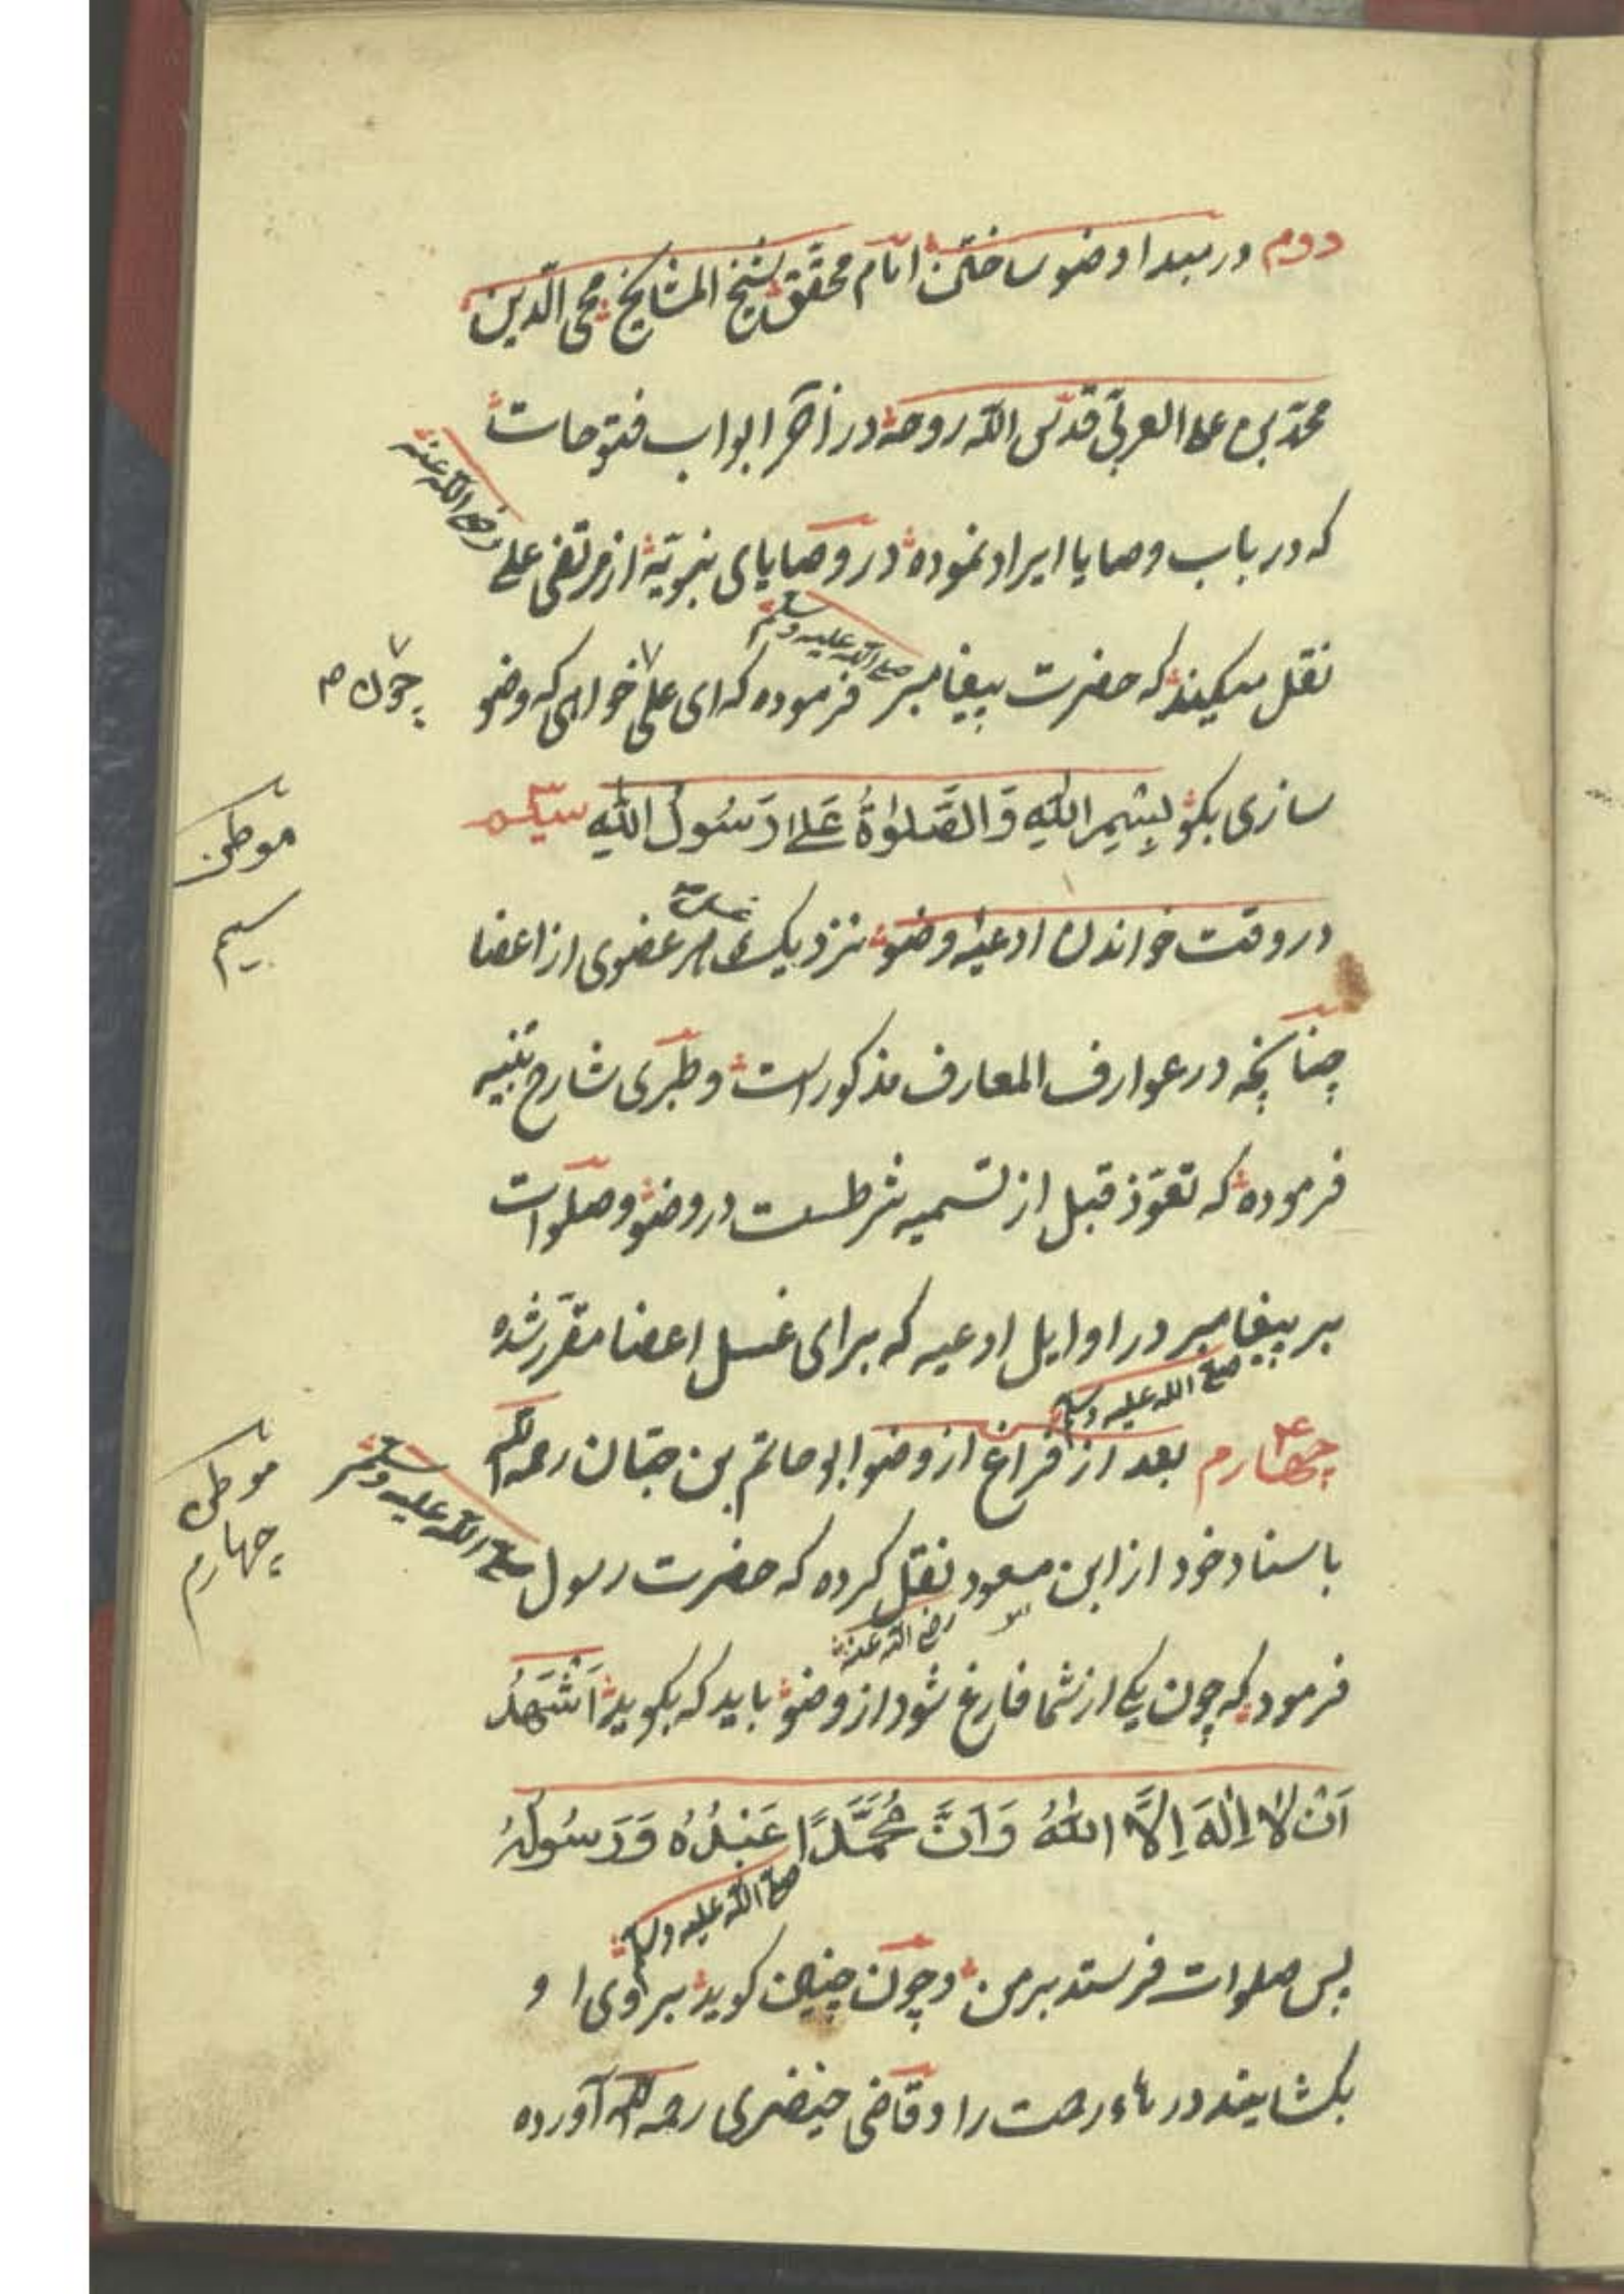 دوم در مبدا وضو ساختن امام محقق شیخ المشایخ محی الدین
محمد بن علی العربی قدس الله روحه در آخر ابواب فتوحات
که در باب وصایا ایراد نموده در وصایای نبویّه از مرتضی علی رضی الله عنه
نقل میکند که حضرت پیغامبر صلی الله علیه وسلم فرموده که ای علی خواهی که وضو
چون
سازی بکو بِسْمِ اللهِ وَالصَّلوٰةُ عَلىٰ رَسُولِ اللهِ سیم
موطن
سیم
در وقت خواندن ادعیه وضو نزدیک غسل هر عضوی از اعضا
چنانچه در عوارف المعارف مذکور است و طبری شارح تنبیه
فرموده که تعوّذ قبل از تسمیه شرطست در وضو و صلوات
بر پیغامبر در اوایل ادعیه که برای غسل اعضا مقرّر شده
صلی الله علیه وسلم
چهارم بعد از فراغ از وضو ابو حاتم بن حبّان رحمه الله
موطن
چهارم
باسناد خود از ابن مسعود نقل کرده که حضرت رسول صلی الله علیه وسلم
رضی الله عنه
فرمود که چون یکی از شما فارغ شود از وضو باید که بکوید اَشْهَدُ
اَنْ لَا اِلٰهَ اِلَّا اللهُ وَاَنَّ مُحَمَّدًا عَبْدُهُ وَرَسُولُهُ
صلی الله علیه وسلم
پس صلوات فرستد بر من و چون چنین کوید بر وی او
بکشایند درهاء رحمت را و قاضی خیضری رحمه الله آورده